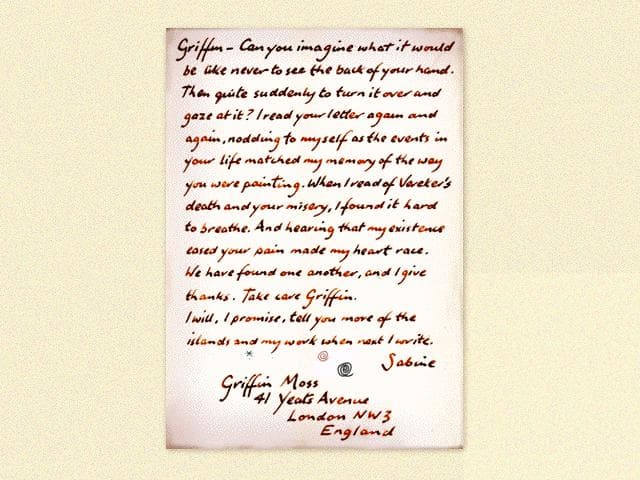 Griffin – Can you imagine what it would
be like never to see the back of your hand.
Then quite suddenly to turn it over and
gaze at it? I read your letter again and
again, nodding to myself as the events in
your life matched my memory of the way
you were painting. When I read of Vereker's
death and your misery, I found it hard
to breathe. And hearing that my existence
eased your pain made my heart race.
We have found one another, and I give
thanks. Take care Griffin.
I will, I promise, tell you more of the
islands and my work when next I write.
Sabine
Griffin Moss
41 Yeats Avenue
London NW3
England